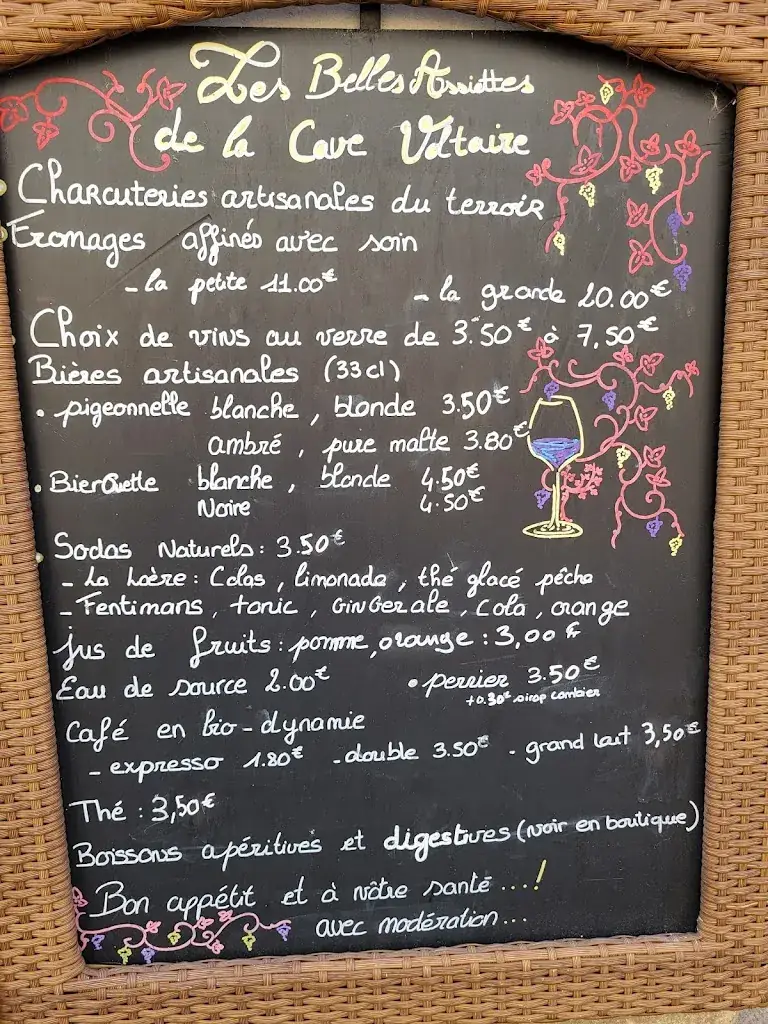 Les Belles Assiettes
de la Cave Voltaire
Charcuteries artisanales du terroir
Fromages affinés avec soin
- la petite 11.00€ - la grande 20.00€
Choix de vins au verre de 3.50€ à 7,50€
Bières artisanales (33cl)
• pigeonnelle blanche, blonde 3.50€
ambré, pure malte 3.80€
• BierOuette blanche, blonde 4.50€
Noire 4.50€
Sodas Naturels: 3.50€
- La Loère: Colas, limonade, thé glacé pêche
- Fentimans, tonic, GinGerale, Cola, orange
Jus de fruits: pomme, orange: 3,00€
Eau de source 2.00€ • perrier 3.50€
+0.30€ sirop combier
Café en bio-dynamie
- expresso 1.80€ - double 3.50€ - grand lait 3,50€
Thé: 3,50€
Boissons apéritives et digestives (voir en boutique)
Bon appétit et à vôtre santé ...!
avec modération...